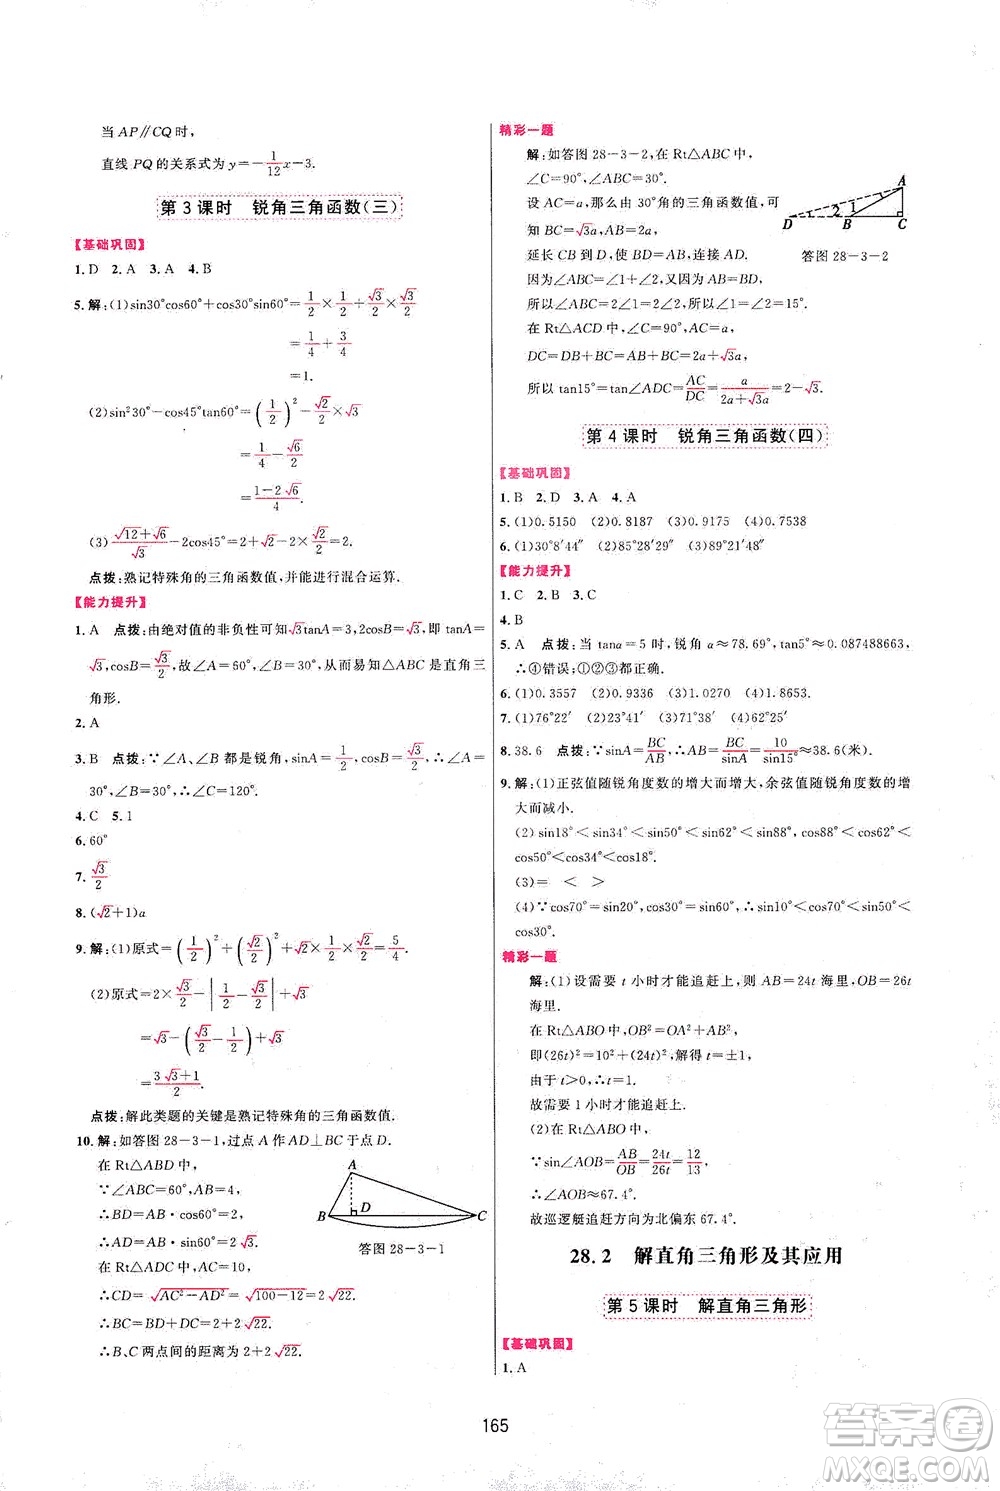 当 AP∥CQ 时,
直线 PQ 的关系式为 y=-1/12x-3.
第 3 课时 锐角三角函数(三)
【基础巩固】
1. D 2. A 3. A 4. B
5. 解:(1)sin30°cos60°+cos30°sin60°=1/2×1/2+√3/2×√3/2
=1/4+3/4
=1.
(2)sin²30°-cos45°tan60°=(1/2)²-√2/2×√3
=1/4-√6/2
=(1-2√6)/4.
(3)(√12+√6)/√3-2cos45°=2+√2-2×√2/2=2.
点拨:熟记特殊角的三角函数值,并能进行混合运算.
【能力提升】
1. A 点拨:由绝对值的非负性可知√3tanA=3,2cosB=√3,即 tanA=
√3,cosB=√3/2,故∠A=60°,∠B=30°,从而易知△ABC 是直角三
角形.
2. A
3. B 点拨:∵∠A、∠B 都是锐角,sinA=1/2,cosB=√3/2,∴∠A=
30°,∠B=30°,∠C=120°.
4. C 5. 1
6. 60°
7. √3/2
8. (√2+1)a
9. 解:(1)原式=(1/2)²+(√2/2)²+√2×√2/2×√3/2×√3/2=5/4
(2)原式=2×√3/2-|√3/2-1/2|+√3/2×√3/2
=√3-(√3/2-1/2)+1/2
=(3√3+1)/2.
点拨:解此类题的关键是熟记特殊角的三角函数值.
10. 解:如答图 28-3-1,过点 A 作 AD⊥BC 于点 D.
在 Rt△ABD 中,
∵∠ABC=60°,AB=4,
∴BD=AB·cos60°=2,
∴AD=AB·sin60°=2√3.
在 Rt△ADC 中,AC=10,
∴CD=√AC²-AD²=√100-12=2√22.
∴BC=BD+CD=2+2√22.
∴B、C 两点间的距离为 2+2√22.
A
B
D
C
答图 28-3-1
精彩一题
解:如答图 28-3-2,在 Rt△ABC 中,
∠C=90°,∠ABC=30°.
设 AC=a,那么由 30°角的三角函数值,可
知 BC=√3a,AB=2a.
延长 CB 到 D,使 BD=AB,连接 AD.
因为∠ABC=∠1+∠2,
所以∠ABC=2∠1=2∠2,所以∠1=∠2=15°.
在 Rt△ACD 中,∠C=90°,AC=a,
DC=DB+BC=AB+BC=2a+√3a,
所以 tan15°=tan∠ADC=AC/DC=a/(2a+√3a)=2-√3.
A
D
2
1
B
C
答图 28-3-2
第 4 课时 锐角三角函数(四)
【基础巩固】
1. B 2. D 3. A 4. A
5. (1)0.5150 (2)0.8187 (3)0.9175 (4)0.7538
6. (1)30°8′44″ (2)85°28′29″ (3)89°21′48″
【能力提升】
1. C 2. B 3. C
4. B
5. A 点拨:当 tanα=5 时,锐角 α≈78.69°,tan5°≈0.087488663,
∴④错误;①②③都正确.
6. (1)0.3557 (2)0.9336 (3)1.0270 (4)1.8653.
7. (1)76°22′ (2)51°18′ (3)23°25′ (4)22°43′
8. 38.6 点拨:∵sinA=BC/AB,∴AB=BC/sinA=10/sin15°≈38.6(米).
9. 解:(1)正弦值随锐角度数的增大而增大,余弦值随锐角度数的增
大而减小.
(2)sin18°<sin34°<sin50°<sin62°<sin88°,cos88°<cos62°<
cos50°<cos34°<cos18°.
(3)= < >
(4)∵cos70°=sin20°,cos30°=sin60°,∴sin10°<cos70°<sin50°<
cos30°.
精彩一题
解:(1)设需要 t 小时才能追赶上,则 AB=24t 海里,OB=26t
海里.
在 Rt△ABO 中,OB²=OA²+AB²,
即(26t)²=10²+(24t)²,解得 t=±1,
由于 t>0,∴t=1.
故需要 1 小时才能追赶上.
(2)在 Rt△ABO 中,
∵sin∠AOB=AB/OB=24t/26t=12/13,
∴∠AOB≈67.4°.
故巡逻艇追赶方向为北偏东 67.4°.
28.2 解直角三角形及其应用
第 5 课时 解直角三角形
【基础巩固】
1. A
165
答案圈
MXQE.COM